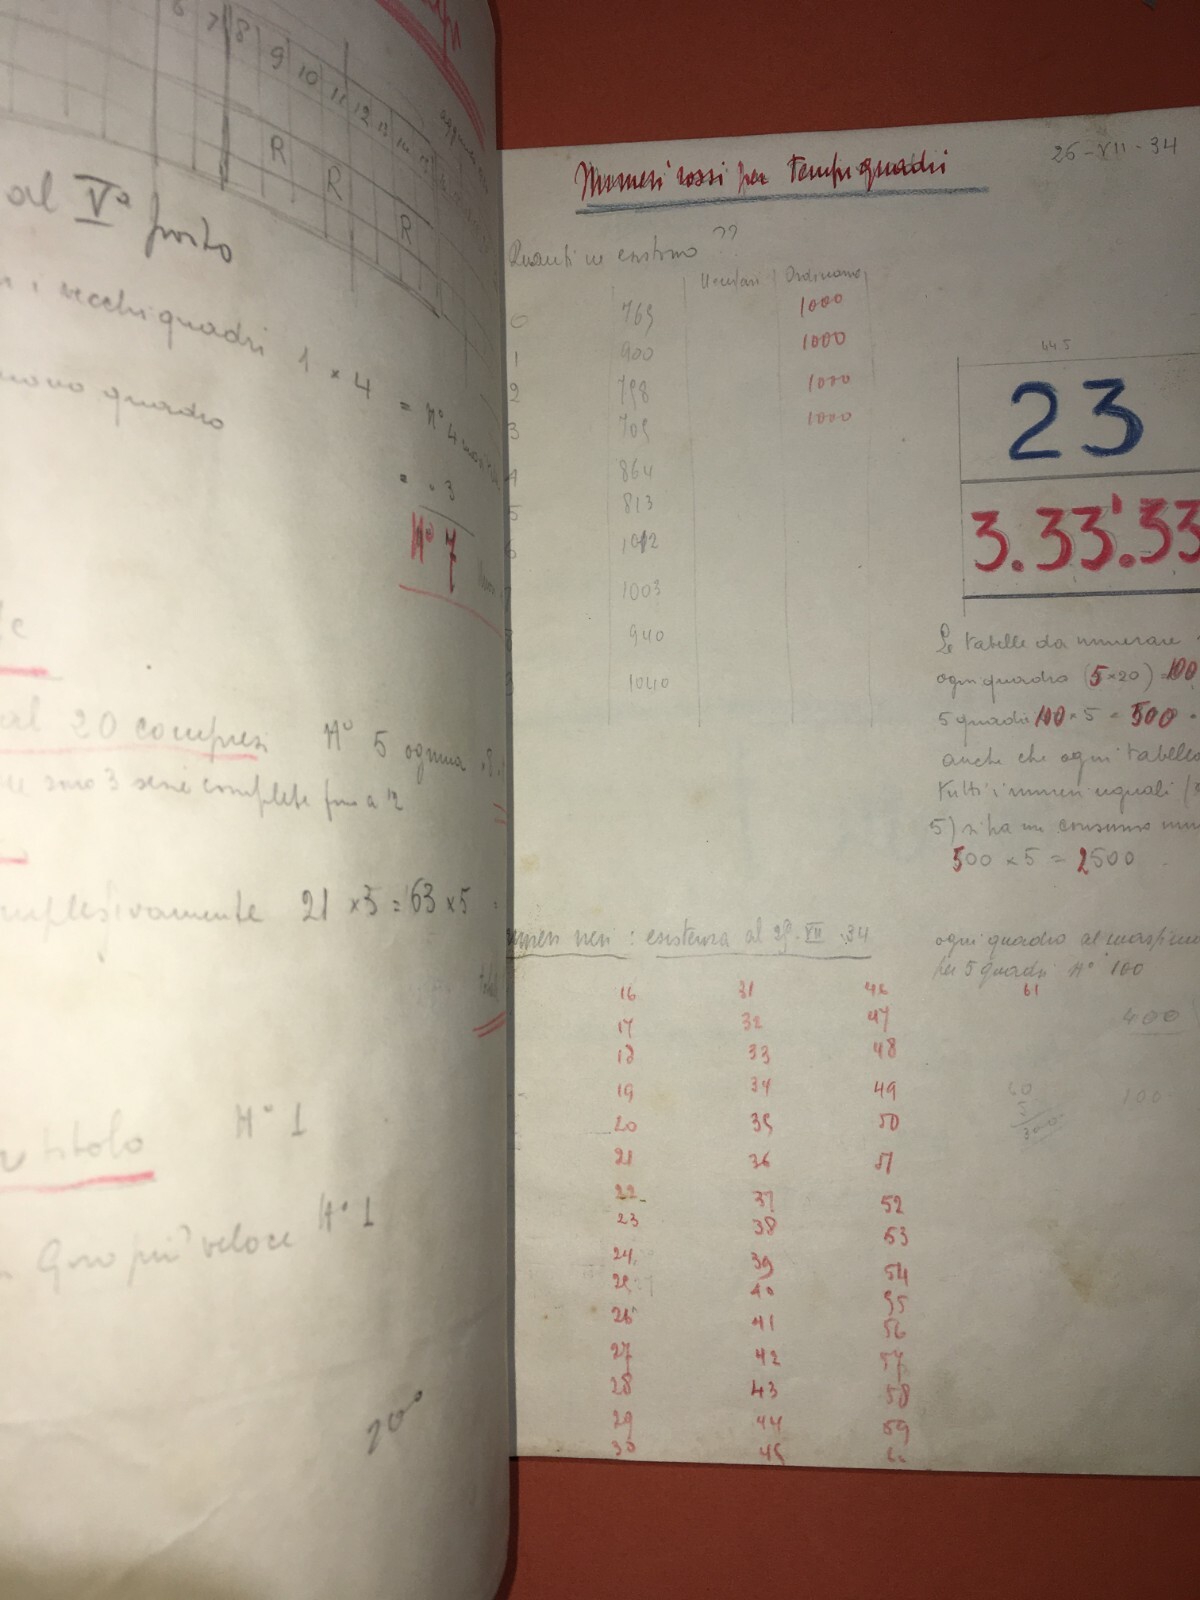 6 7 8 9 10 11 12 13 14 15
R
R
R
al V° posto
i vecchi quadri 1 × 4 = N° 4
nuovo quadro = . 3
N° 7
al 20 compresi N° 5 ognuna
sono 3 serie complete fino a 12
21 × 3 = 63 × 5 =
titolo N° 1
Giro più veloce N° 1
20°
Numeri rossi per tempi quadri
26-VII-34
Quanti ne esistono ??
Ordinarne
0 769 1000
1 900 1000
2 798 1000
3 709 1000
4 864
5 813
6 1012
7 1003
8 940
1040
445
23
3.33'.33
Le tabelle da numerare
ogni quadro (5×20) = 100
5 quadri 100 × 5 = 500
anche che ogni tabella
tutti i numeri uguali
5) si ha un consumo
500 × 5 = 2500
numeri neri : esistenza al 29-VII-34
ogni quadro al massimo
per 5 quadri N° 100
16 31 46 61
17 32 47
18 33 48
19 34 49
20 35 50
21 36 51
22 37 52
23 38 53
24 39 54
25 40 55
26 41 56
27 42 57
28 43 58
29 44 59
30 45
400
60
5
300
100